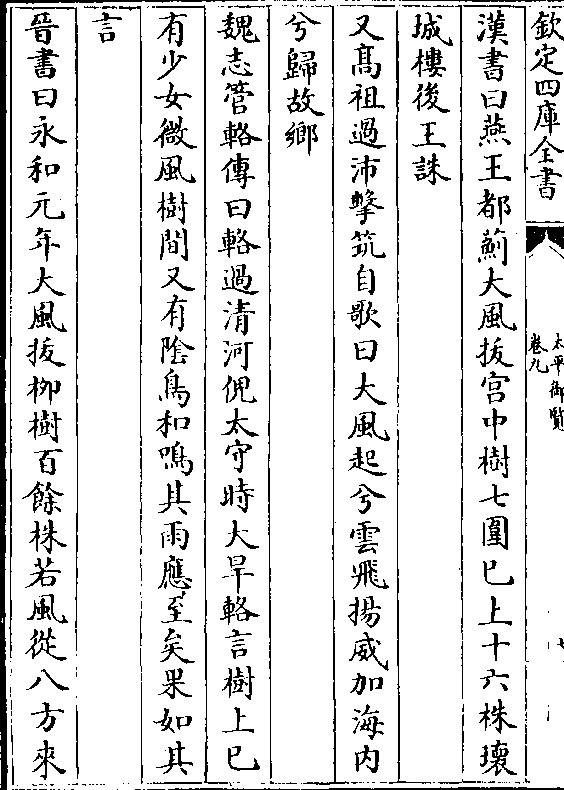 欽定四庫全書
太平御覽
卷九
七
漢書曰燕王都薊大風拔宮中樹七圍已上十六株壞
城樓後王誅
又髙祖過沛擊筑自歌曰大風起兮雲飛揚威加海内
兮歸故鄉
魏志管輅傳曰輅過清河倪太守時大旱輅言樹上已
有少女微風樹間又有隂鳥和鳴其雨應至矣果如其
言
晉書曰永和元年大風拔柳樹百餘株若風從八方來